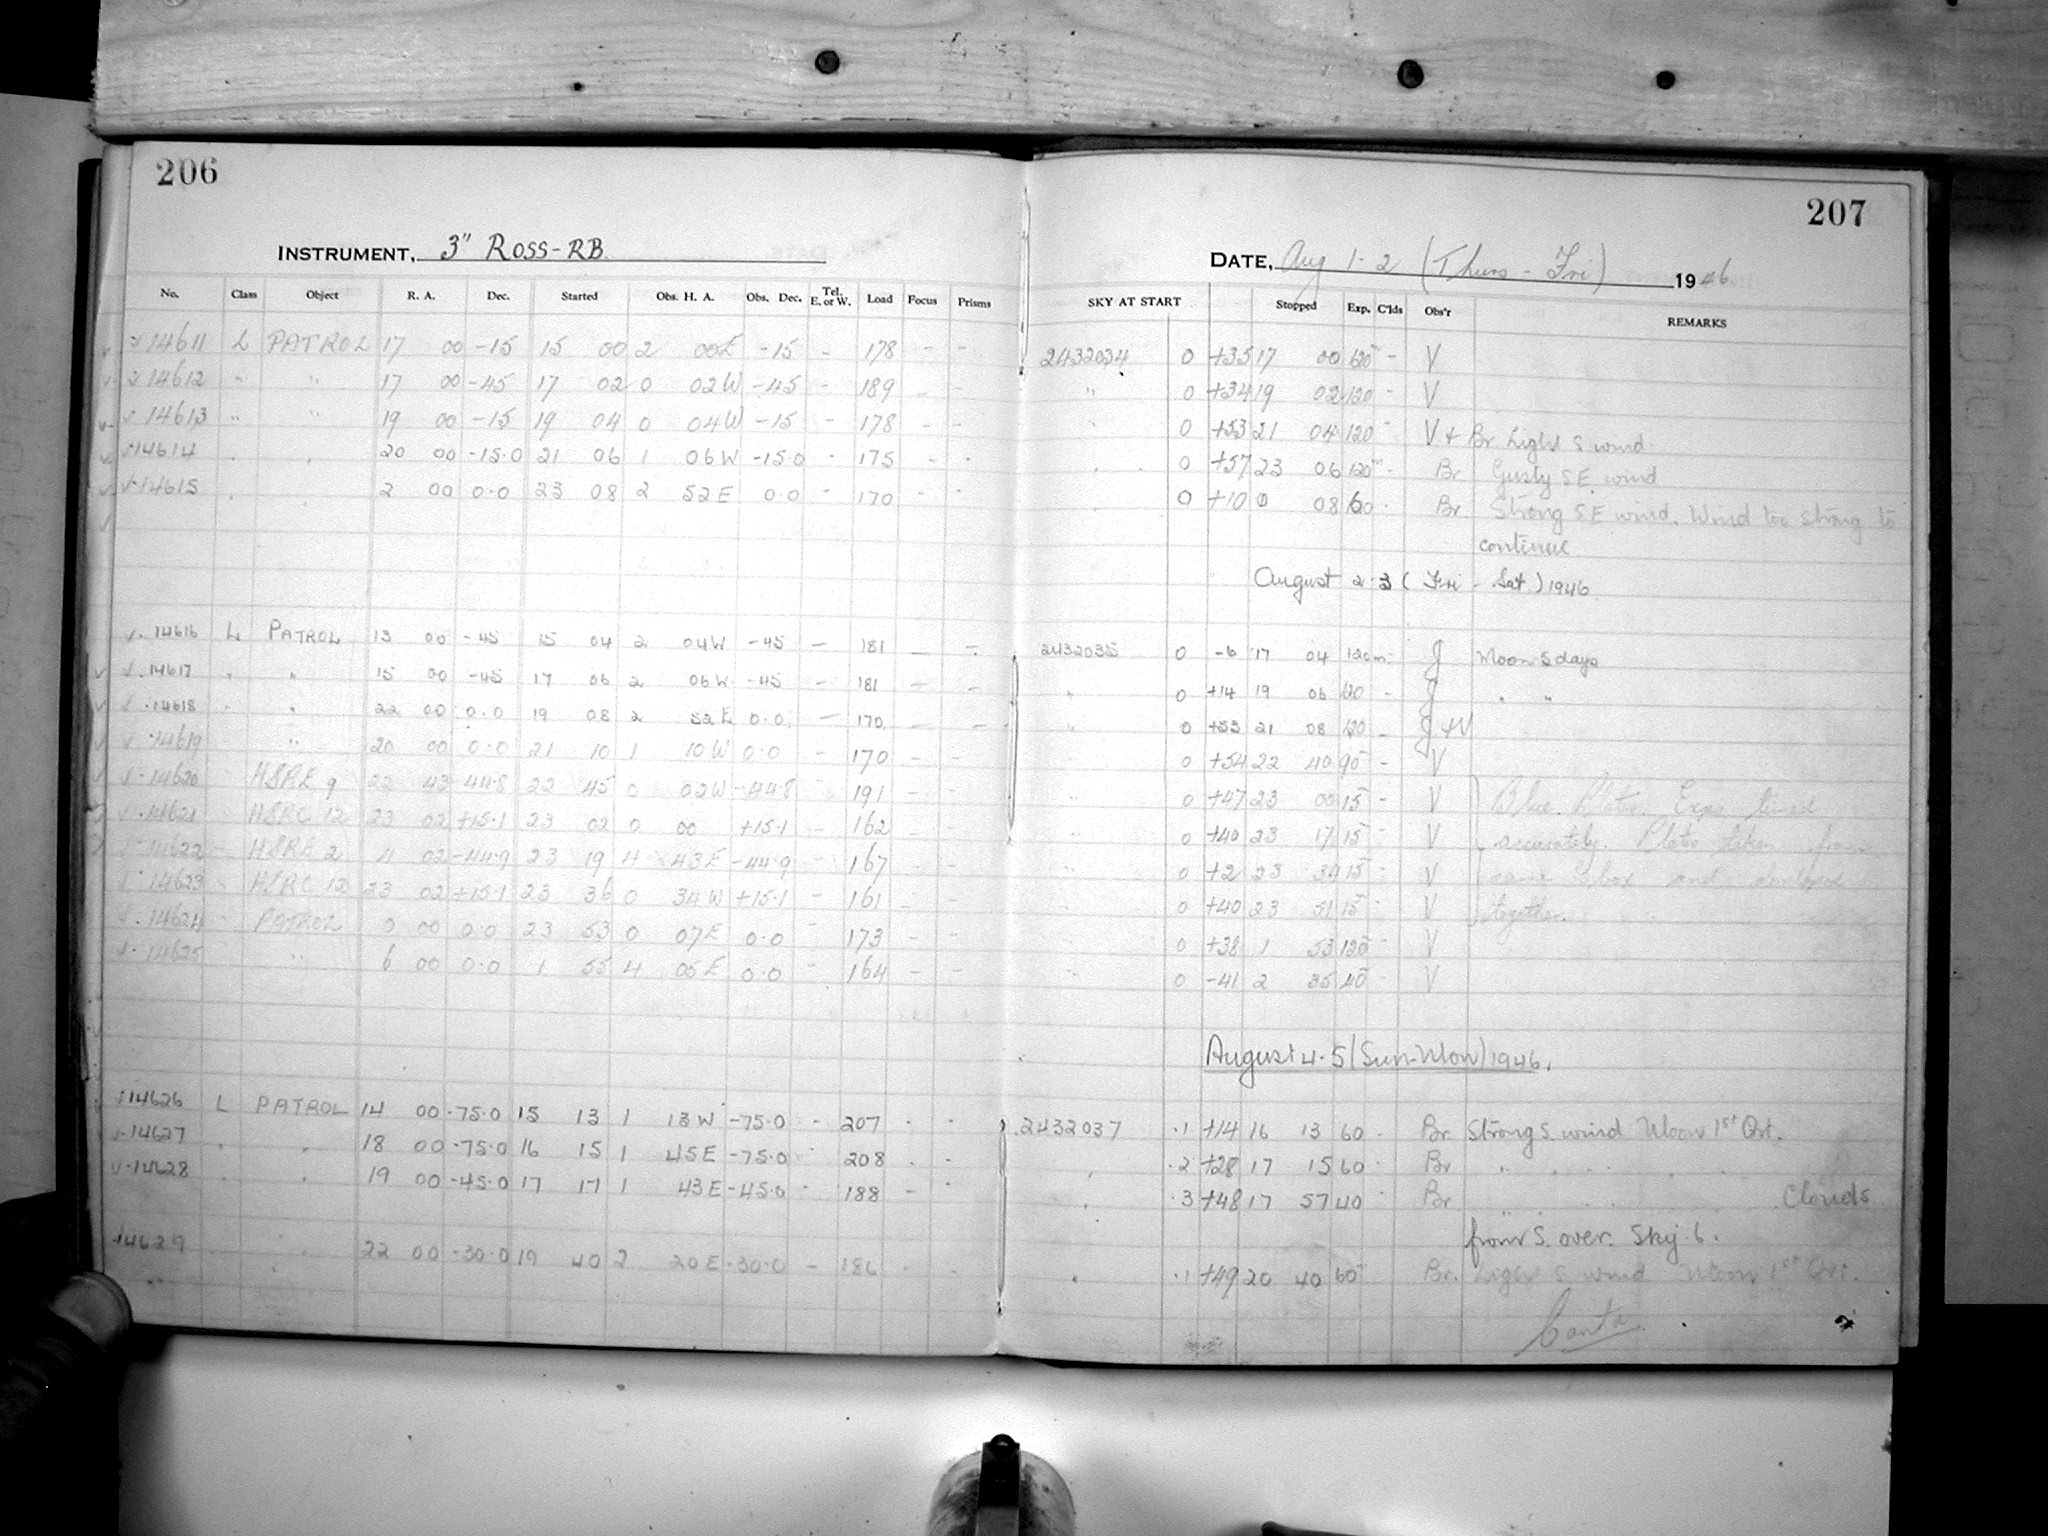 206
INSTRUMENT, 3" ROSS-RB
No. Class Object R. A. Dec. Started Obs. H. A. Obs. Dec. Tel. E. or W. Load Focus Prisms
14611 L PATROL 17 00 -15 15 00 2 00E -15 - 178 - -
14612 " " 17 00 -45 17 02 0 02W -45 - 189 - -
14613 " " 19 00 -15 19 04 0 04W -15 - 178 - -
14614 " " 20 00 -15.0 21 06 1 06W -15.0 - 175 - -
14615 " " 2 00 0.0 23 08 2 52E 0.0 - 170 - -
14616 L PATROL 13 00 -45 15 04 2 04W -45 - 181 - -
14617 " " 15 00 -45 17 06 2 06W -45 - 181 - -
14618 " " 22 00 0.0 19 08 2 52E 0.0 - 170 - -
14619 " " 20 00 0.0 21 10 1 10W 0.0 - 170 - -
14620 HSRE 9 22 43 -44.8 22 45 0 02W -44.8 191 - -
14621 HSRC 12 23 02 +15.1 23 02 0 00 +15.1 - 162 - -
14622 HSRE 2 4 02 -44.9 23 19 4 43E -44.9 - 167 - -
14623 HSRC 12 23 02 +15.1 23 36 0 34W +15.1 - 161 - -
14624 PATROL 0 00 0.0 23 53 0 07E 0.0 - 173 - -
14625 " 6 00 0.0 1 55 4 05E 0.0 - 164 - -
14626 L PATROL 14 00 -75.0 15 13 1 13W -75.0 - 207 - -
14627 " " 18 00 -75.0 16 15 1 45E -75.0 208 - -
14628 " " 19 00 -45.0 17 17 1 43E -45.0 - 188 - -
14629 " " 22 00 -30.0 19 40 2 20E -30.0 - 186 - -
207
DATE, Aug 1-2 (Thurs - Fri) 1946
SKY AT START Stopped Exp. C'lds Obs'r REMARKS
2432034 0 +35 17 00 120 - V
" 0 +34 19 02 120 - V
" 0 +53 21 04 120 - V + Br Light S wind
" 0 +57 23 06 120 - Br Gusty SE wind
" 0 +10 0 08 60 - Br Strong SE wind. Wind too strong to
continue
August 2-3 (Fri - Sat) 1946
2432035 0 -6 17 04 120m J Moon 5 days
" 0 +14 19 06 120 - J " "
" 0 +53 21 08 120 - J + V
" 0 +54 22 40 90 - V
" 0 +47 23 00 15 - V Blue Plates. Exps timed
" 0 +40 23 17 15 - V accurately. Plates taken from
" 0 +2 23 34 15 - V same box and
" 0 +40 23 51 15 - V together.
" 0 +38 1 53 120 - V
" 0 -41 2 35 40 - V
August 4-5 (Sun-Mon) 1946.
2432037 .1 +14 16 13 60 - Br. Strong S. wind Moon 1st Qrt.
" .2 +28 17 15 60 - Br " "
" .3 +48 17 57 40 - Br " " Clouds
from S. over. Sky .6.
" .1 +49 20 40 60 Br. Light S wind Moon 1st Qrt.
Contd.